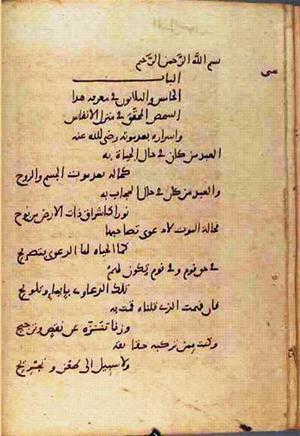 بسم الله الرحمن الرحيم
الباب
الخامس والثلاثون في معرفة هذا
الشخص المحقق في منزل الانفاس
واسراره بعد موته رضي الله عنه
العبد من كان في حال الحياة به
كحاله بعد موت الجسم والروح
والعبد من كان في حال الحجاب به
نورا كاشراق ذات الارض من يوح
فحالة الموت لا دعوى تصاحبها
كما الحياة لها الدعوى بتصريح
في حق قوم وفي قوم تكون لهم
تلك الدعاوى بايماء وتلويح
فان فهمت الذي قلناه قمت به
وزنا تنزه عن نقص وترجيح
وكنت ممن تزكيه حقايقه
ولا سبيل الى طعن وتجريح